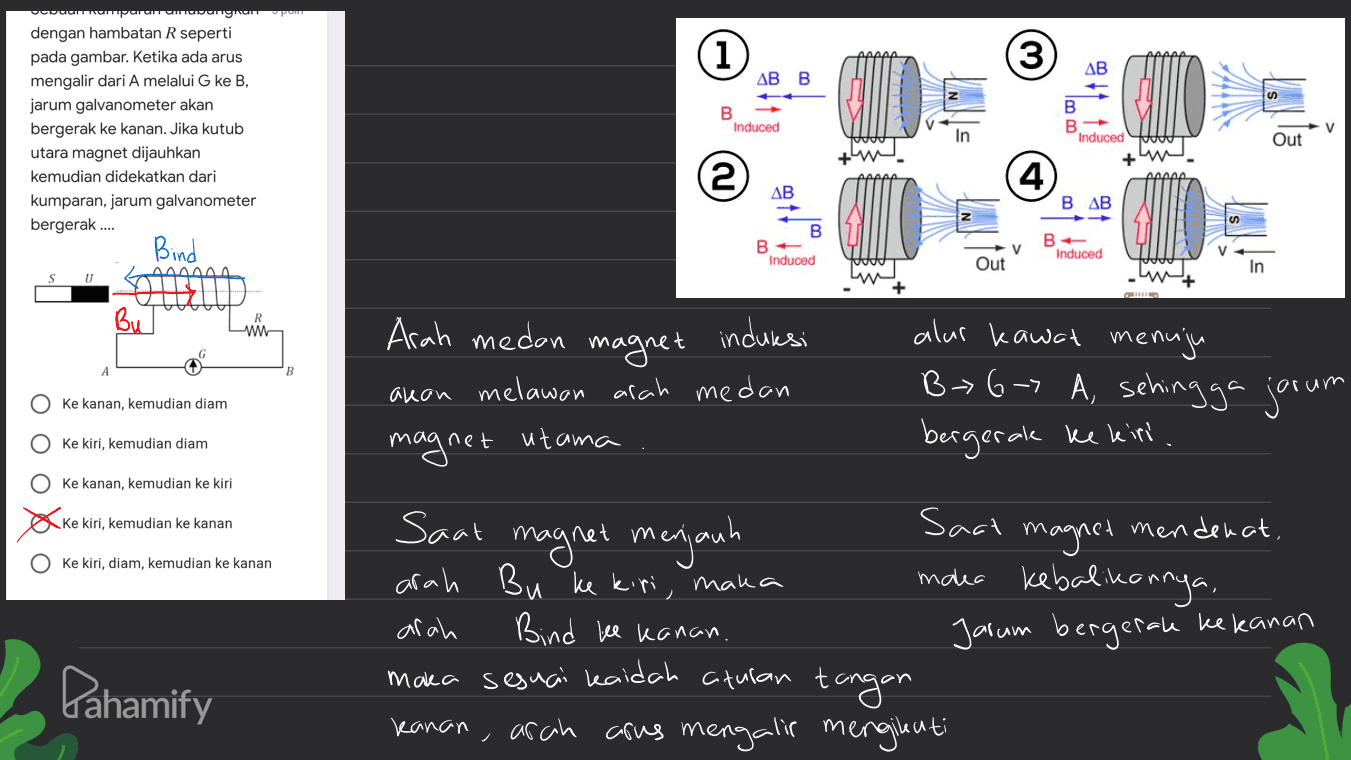 dengan hambatan R seperti
pada gambar. Ketika ada arus
mengalir dari A melalui G ke B,
jarum galvanometer akan
bergerak ke kanan. Jika kutub
utara magnet dijauhkan
kemudian didekatkan dari
kumparan, jarum galvanometer
bergerak ....
Bind
S U
Bu
R
G
A B
Ke kanan, kemudian diam
Ke kiri, kemudian diam
Ke kanan, kemudian ke kiri
Ke kiri, kemudian ke kanan
Ke kiri, diam, kemudian ke kanan
1
ΔB B
B Induced
N
V
In
+ -
2
ΔB
B
B Induced
N
V
Out
- +
3
ΔB
B
B Induced
S
V
Out
+ -
4
B ΔB
B Induced
S
V
In
- +
Arah medan magnet induksi
akan melawan arah medan
magnet utama.
Saat magnet menjauh
arah Bu ke kiri, maka
arah Bind ke kanan.
maka sesuai kaidah aturan tangan
kanan, arah arus mengalir mengikuti
alur kawat menuju
B → G → A, sehingga jarum
bergerak ke kiri.
Saat magnet mendekat,
maka kebalikannya,
Jarum bergerak ke kanan
Pahamify